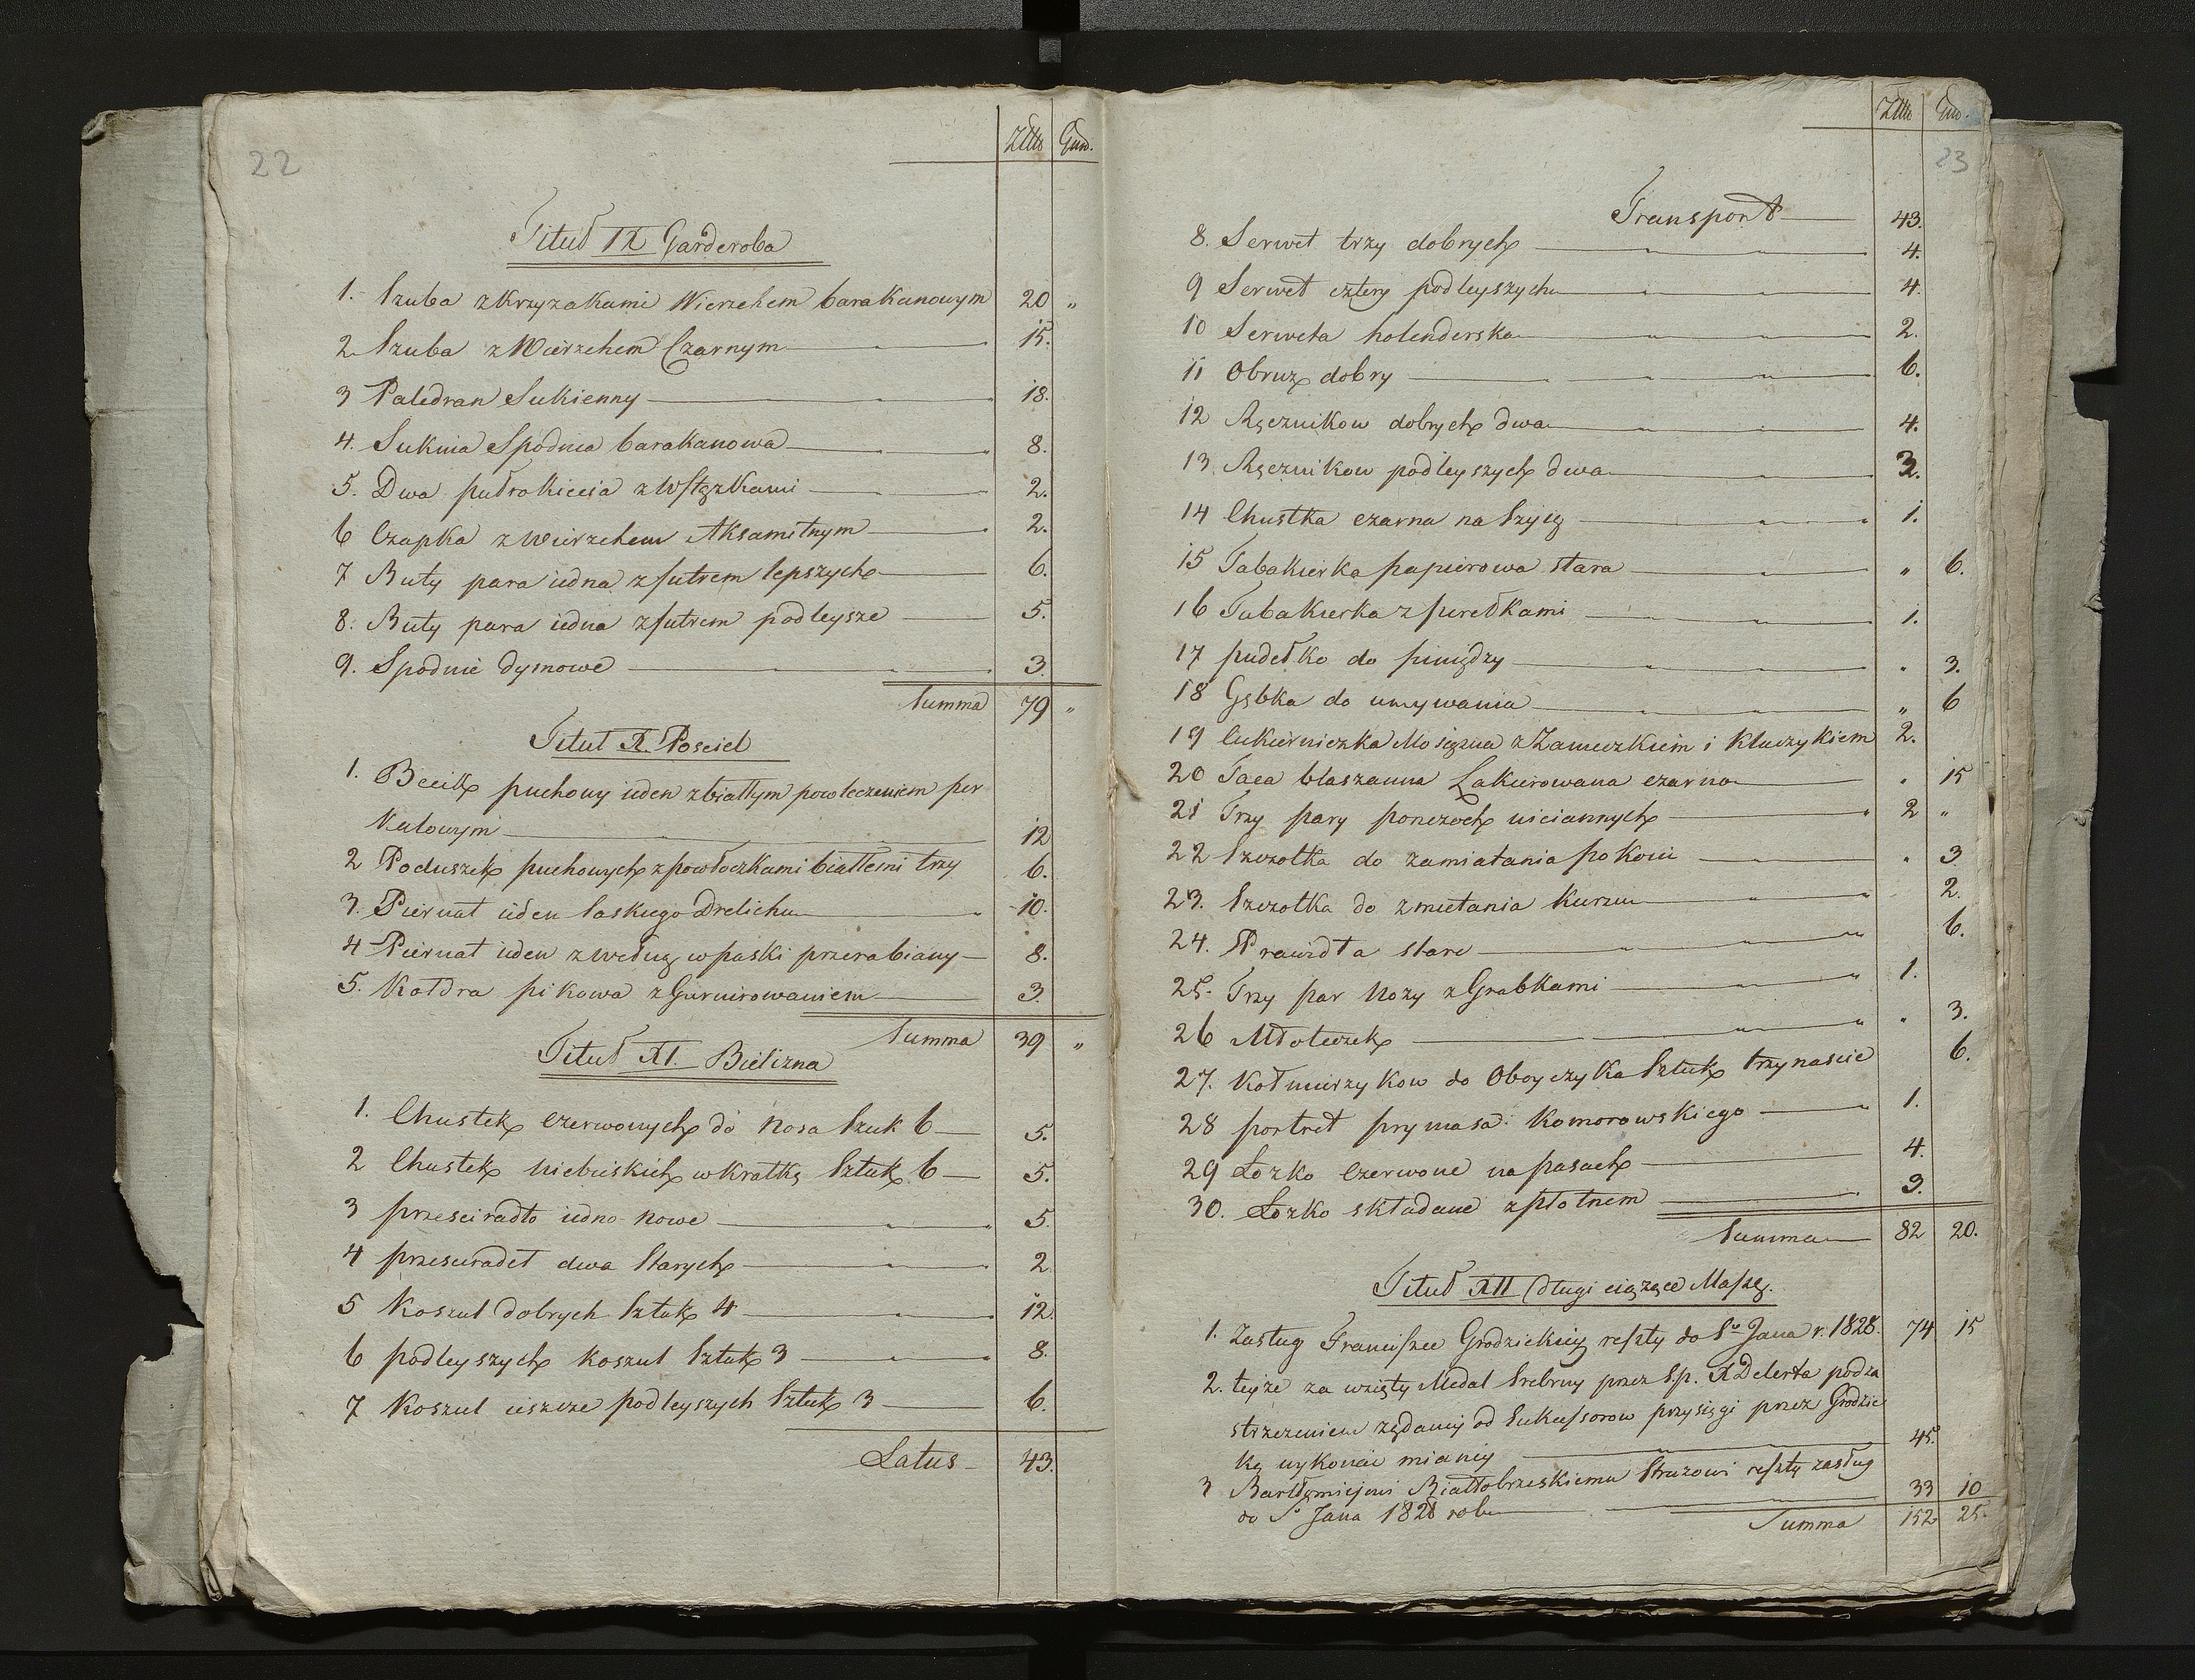 22
Złto Grro.
Tituł IX Garderoba
1. Szuba z krzyzakami Wierzchem barakanowym 20 "
2 Szuba z Wierzchem Czarnym 15.
3 Paledran Sukienny 18.
4. Suknia Spodnia barakanowa 8.
5. Dwa pułrokiecia z Wstązkami 2.
6 Czapka z wierzchem Aksamitnym 2.
7 Buty para iedna z futrem lepszych 6.
8. Buty para iedna z futrem podleysze 5.
9. Spodnie dymowe 3.
Summa 79 "
Tituł X. Posciel
1. Becik puchowy ieden z białłym powleczeniem per
kalowym 12
2 Poduszek puchowych z powłoczkami białłemi trzy 6.
3. Piernat ieden Saskiego Drelichu 10.
4 Piernat ieden z wełną w paski przerabiany 8.
5. Kołdra pikowa z Garnirowaniem 3.
Summa 39 "
Tituł XI. Bielizna
1. Chustek czerwonych do Nosa Szuk 6 5.
2 Chustek niebieskich w kratkę Sztuk 6 5.
3 przescieradło iedno nowe 5.
4 przescieradeł dwa Starych 2
5 Koszul dobrych Sztuk 4 12.
6 podleyszych koszul Sztuk 3 8.
7 Koszul ieszcze podleyszych Sztuk 3 6.
Latus 43.
Złto Grro.
23
Transport 43.
8. Serwet trzy dobrych 4.
9 Serwet cztery podleyszych 4.
10 Serweta holenderska 2.
11 Obrus dobry 6.
12 Ręcznikow dobrych dwa 4.
13. Ręcznikow podleyszych dwa 3.
14 Chustka czarna na Szyię 1.
15 Tabakierka papierowa stara " 6.
16 Tabakierka z perełkami 1.
17 pudełko do pieniędzy . 3.
18 Gębka do umywania " 6
19 Cukierniczka Mosiężna z Zameczkiem i kluczykiem 2.
20 Taca blaszanna Lakierowana czarna . 15
21 Trzy pary ponczoch niciannych 2 "
22 Szczotka do zamiatania pokoiu . 3
23. Szczotka do zmietania kurzu 2.
24. Prawidła stare 6.
25. Trzy par Nozy z Grabkami 1.
26 Młoteczek . 3.
27. Kołnierzykow do Oboyczyka Sztuk trzynascie 6.
28 portret prymasa Komorowskiego 1.
29 Łozko czerwone na pasach 4.
30. Łozko składane z płotnem 3.
Summa 82 20.
Tituł XII Długi ciążące Massę.
1. Zasług Franciszce Grodzickiey reszty do So Jana r. 1828. 74 15
2. teyze za wzięty Medal Srebrny przez Sp. X Delerta pod za
strzezeniem żądaney od Sukcessorow przysięgi przez Grodzic
ką wykonać mianey 45.
3 Bartłomiejowi Białłobrzeskiemu Struzowi resztę zasług
do So Jana 1828 roku 33 10
Summa 152 25.